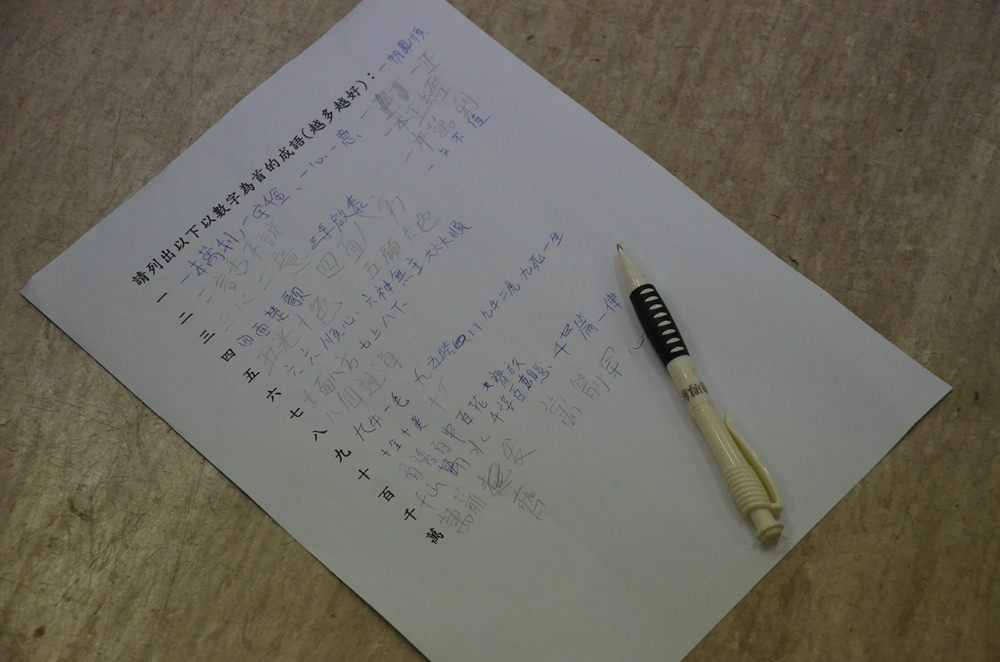 請列出以下以數字為首的成語(越多越好)：一帆風順
一 一本萬利，一字千金、一心一意、一 一正
本正經
一文不值
二 二言不說
三 三心二意 三羊啟泰
四 四面楚歌 四面八方
五 五光十色 五顏六色
六 六六順心、六神無主 六六大順
七 七上八下
八 八仙過海
九 九牛一毛 九牛二虎 九死一生
十 十全十美
百 百發百中 百花齊放
千 千山萬水 千姿百態 千篇一律
萬 萬箭穿心
萬箭 發